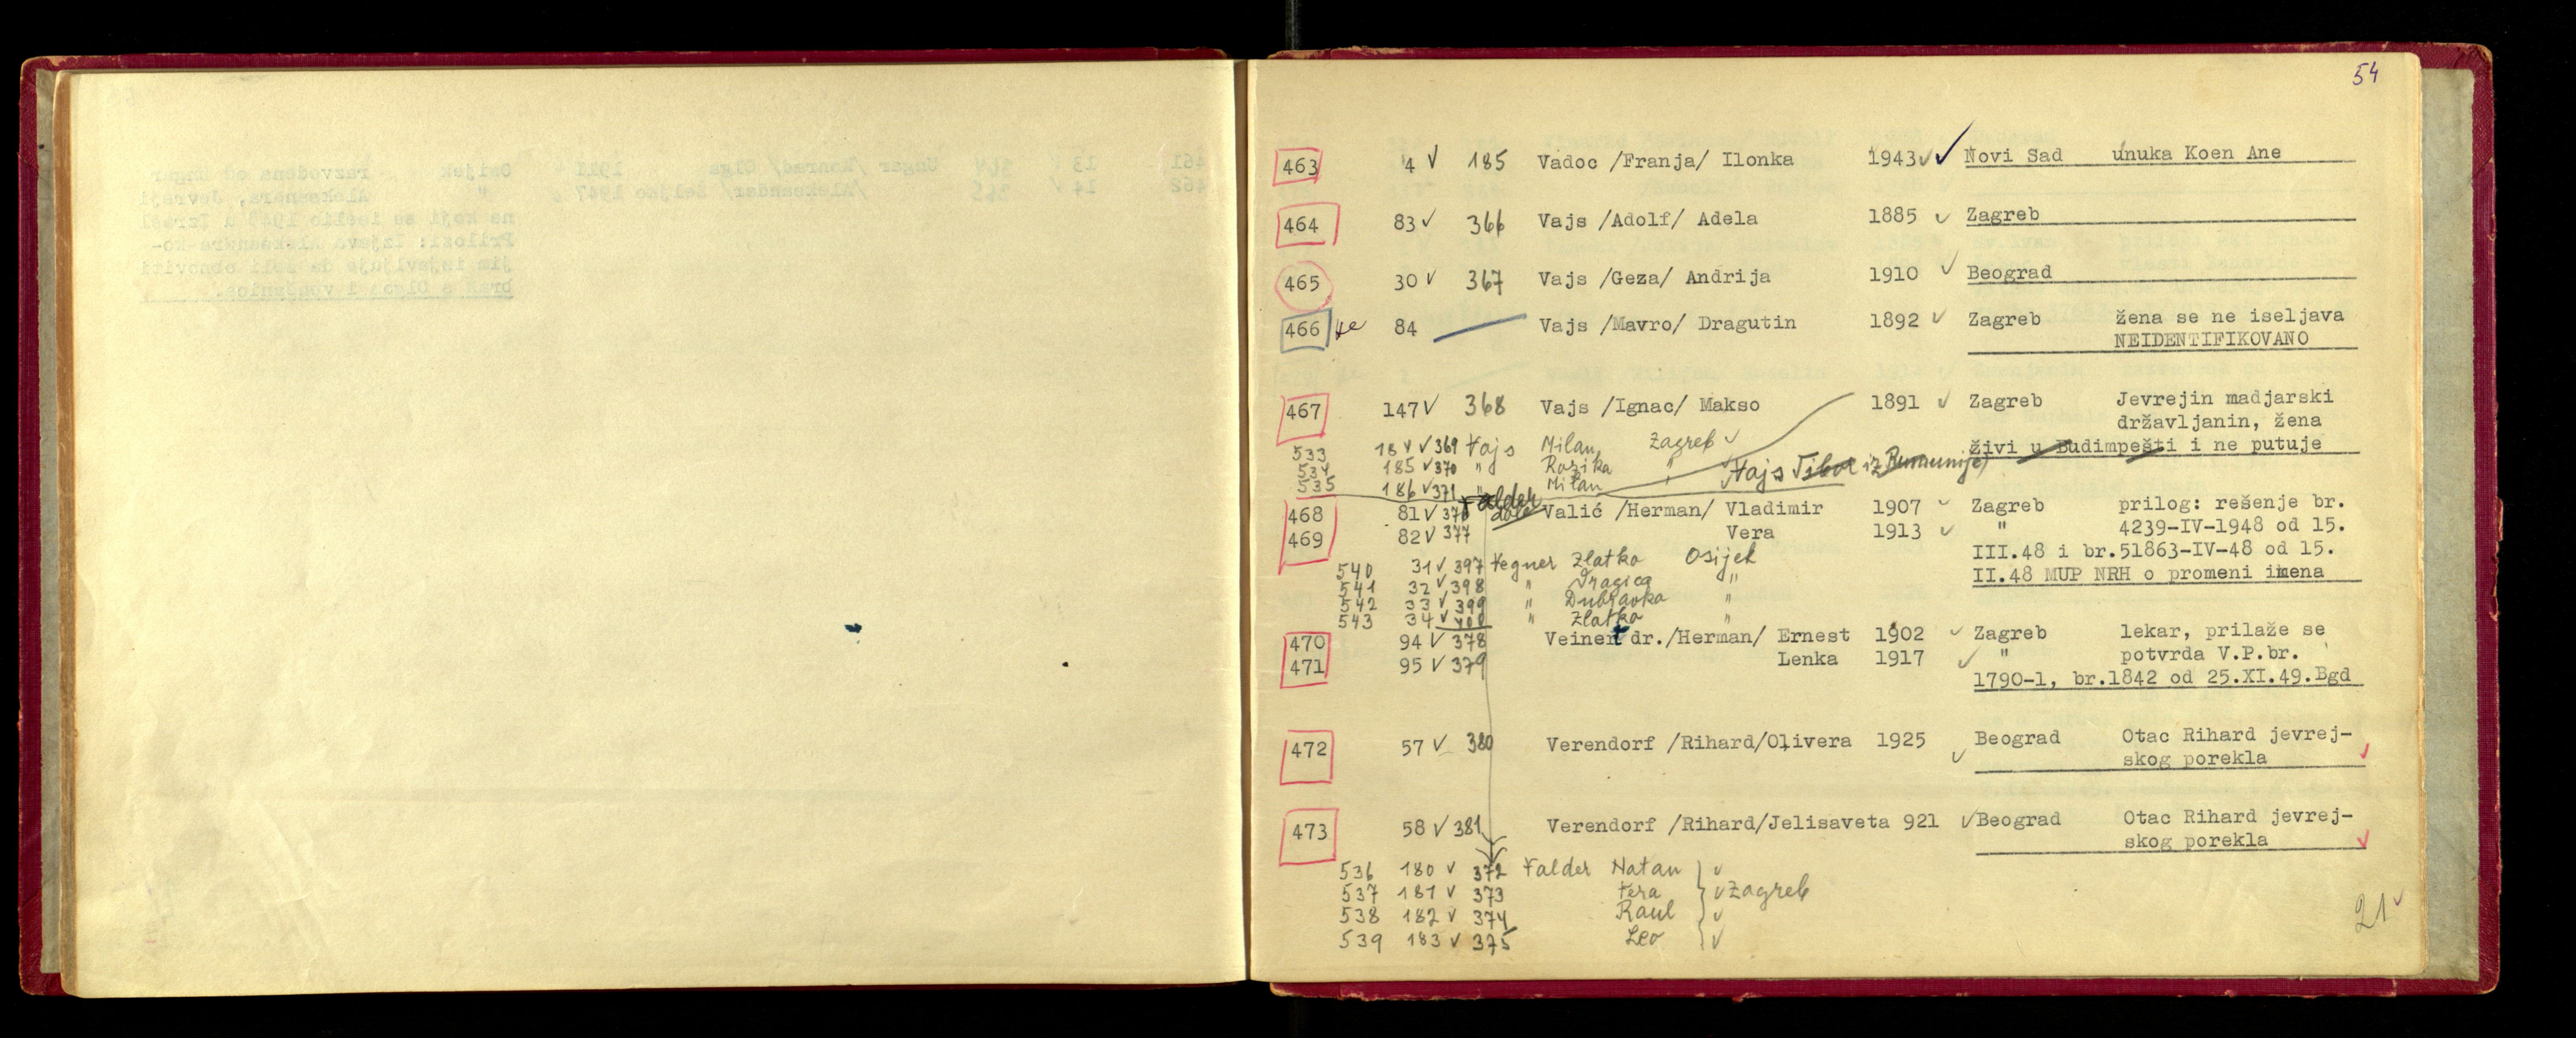 54
463 4 √ 185 Vadoc /Franja/ Ilonka 1943 √ √ Novi Sad unuka Koen Ane
464 83 √ 366 Vajs /Adolf/ Adela 1885 √ Zagreb
465 30 √ 367 Vajs /Geza/ Andrija 1910 √ Beograd
466 84 Vajs /Mavro/ Dragutin 1892 √ Zagreb žena se ne iseljava
NEIDENTIFIKOVANO
467 147 √ 368 Vajs /Ignac/ Makso 1891 √ Zagreb Jevrejin madjarski
državljanin, žena
živi u Budimpešti i ne putuje
533 184 √ 369 Vajs Milan, Zagreb √
534 185 √ 370 " Rozika "
Vajs Tibor iz Rumunije)
535 186 √ 371 " Milan "
Falder dole
468 81 √ 376 Valić /Herman/ Vladimir 1907 √ Zagreb prilog: rešenje br.
469 82 √ 377 Vera 1913 √ " 4239-IV-1948 od 15.
III.48 i br.51863-IV-48 od 15.
II.48 MUP NRH o promeni imena
540 31 √ 397 Vegner Zlatko Osijek
541 32 √ 398 " Dragica "
542 33 √ 399 " Dubravka "
543 34 √ 400 " Zlatko "
470 94 √ 378 Veinert dr./Herman/ Ernest 1902 √ Zagreb lekar, prilaže se
471 95 √ 379 Lenka 1917 √ " potvrda V.P.br.
1790-1, br.1842 od 25.XI.49.Bgd
472 57 √ 380 Verendorf /Rihard/Olivera 1925 √ Beograd Otac Rihard jevrej-
skog porekla √
473 58 √ 381 Verendorf /Rihard/Jelisaveta 921 √ Beograd Otac Rihard jevrej-
skog porekla √
536 180 √ 372 Falder Natan √
537 181 √ 373 Vera √ Zagreb
538 182 √ 374 Raul √
539 183 √ 375 Leo √
21 √